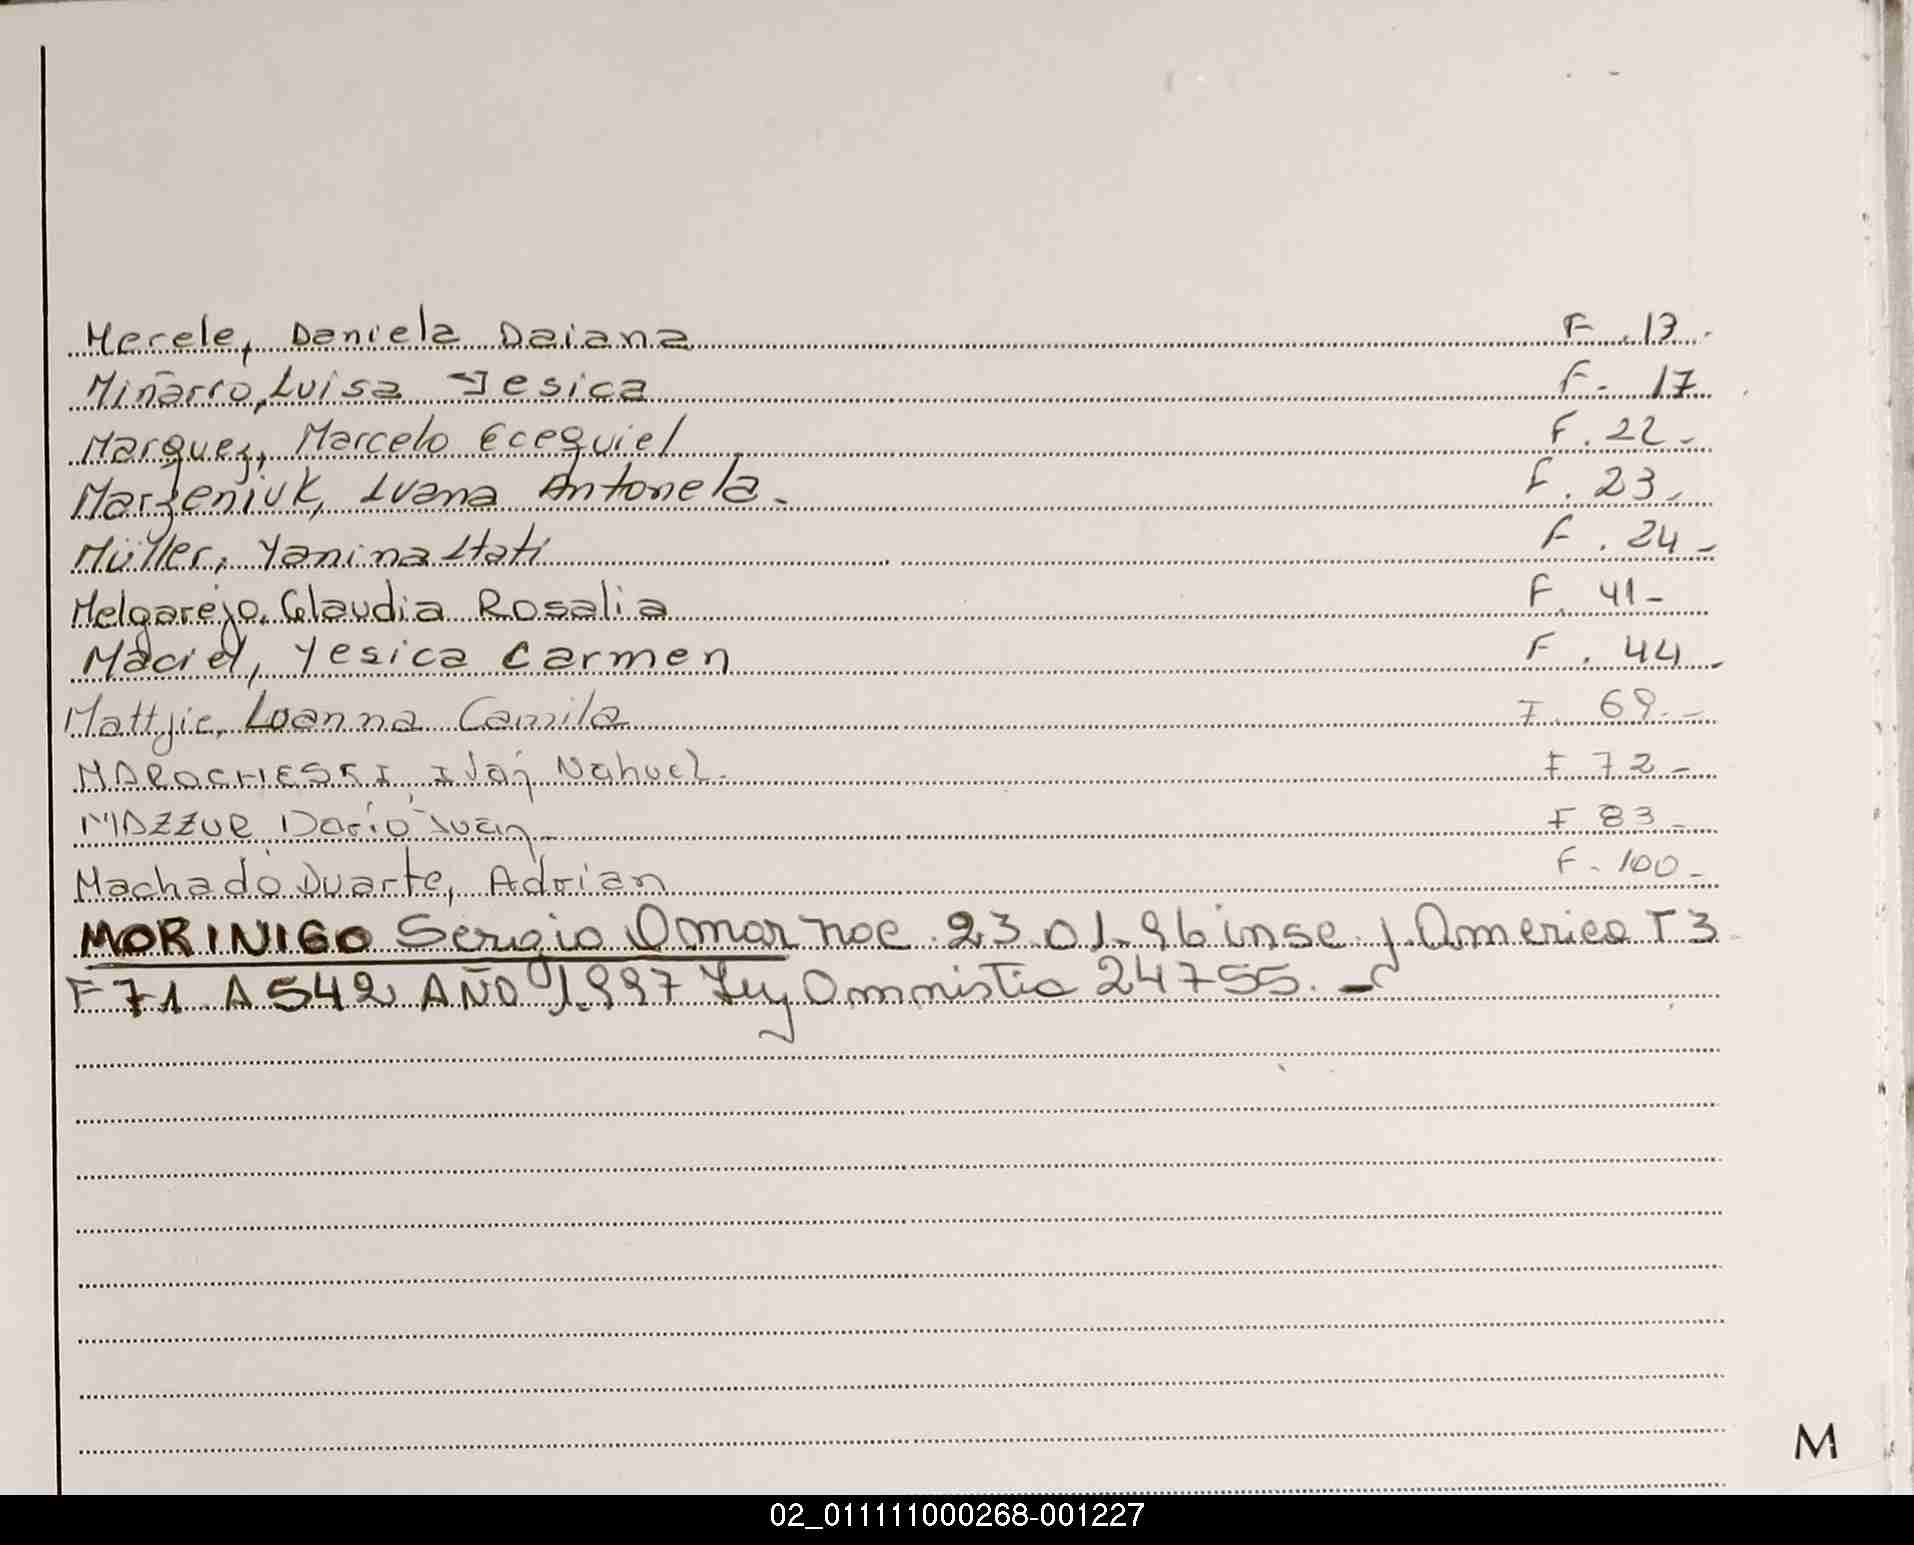 Merele, Daniela Daiana F. 13.
Miñarro, Luisa Jesica F. 17
Marquez, Marcelo Ecequiel F. 22-
Marzeniuk, Ivana Antonela. F. 23-
Müller, Yanina Itatí F. 24-
Melgarejo, Claudia Rosalia F. 41-
Maciel, Yesica Carmen F. 44-
Mattjie, Loanna Camila F. 69.-
MAROCHESKI, Iván Nahuel. F 72-
MAZZUR Darío Juan- F 83-
Machado Duarte, Adrian F. 100-
MORINIGO Sergio Omar noc. 23.01.96 insc. J. America T3
F71 A 542 AÑO 1.997 Ley Ammistia 24755.-
M
02_011111000268-001227